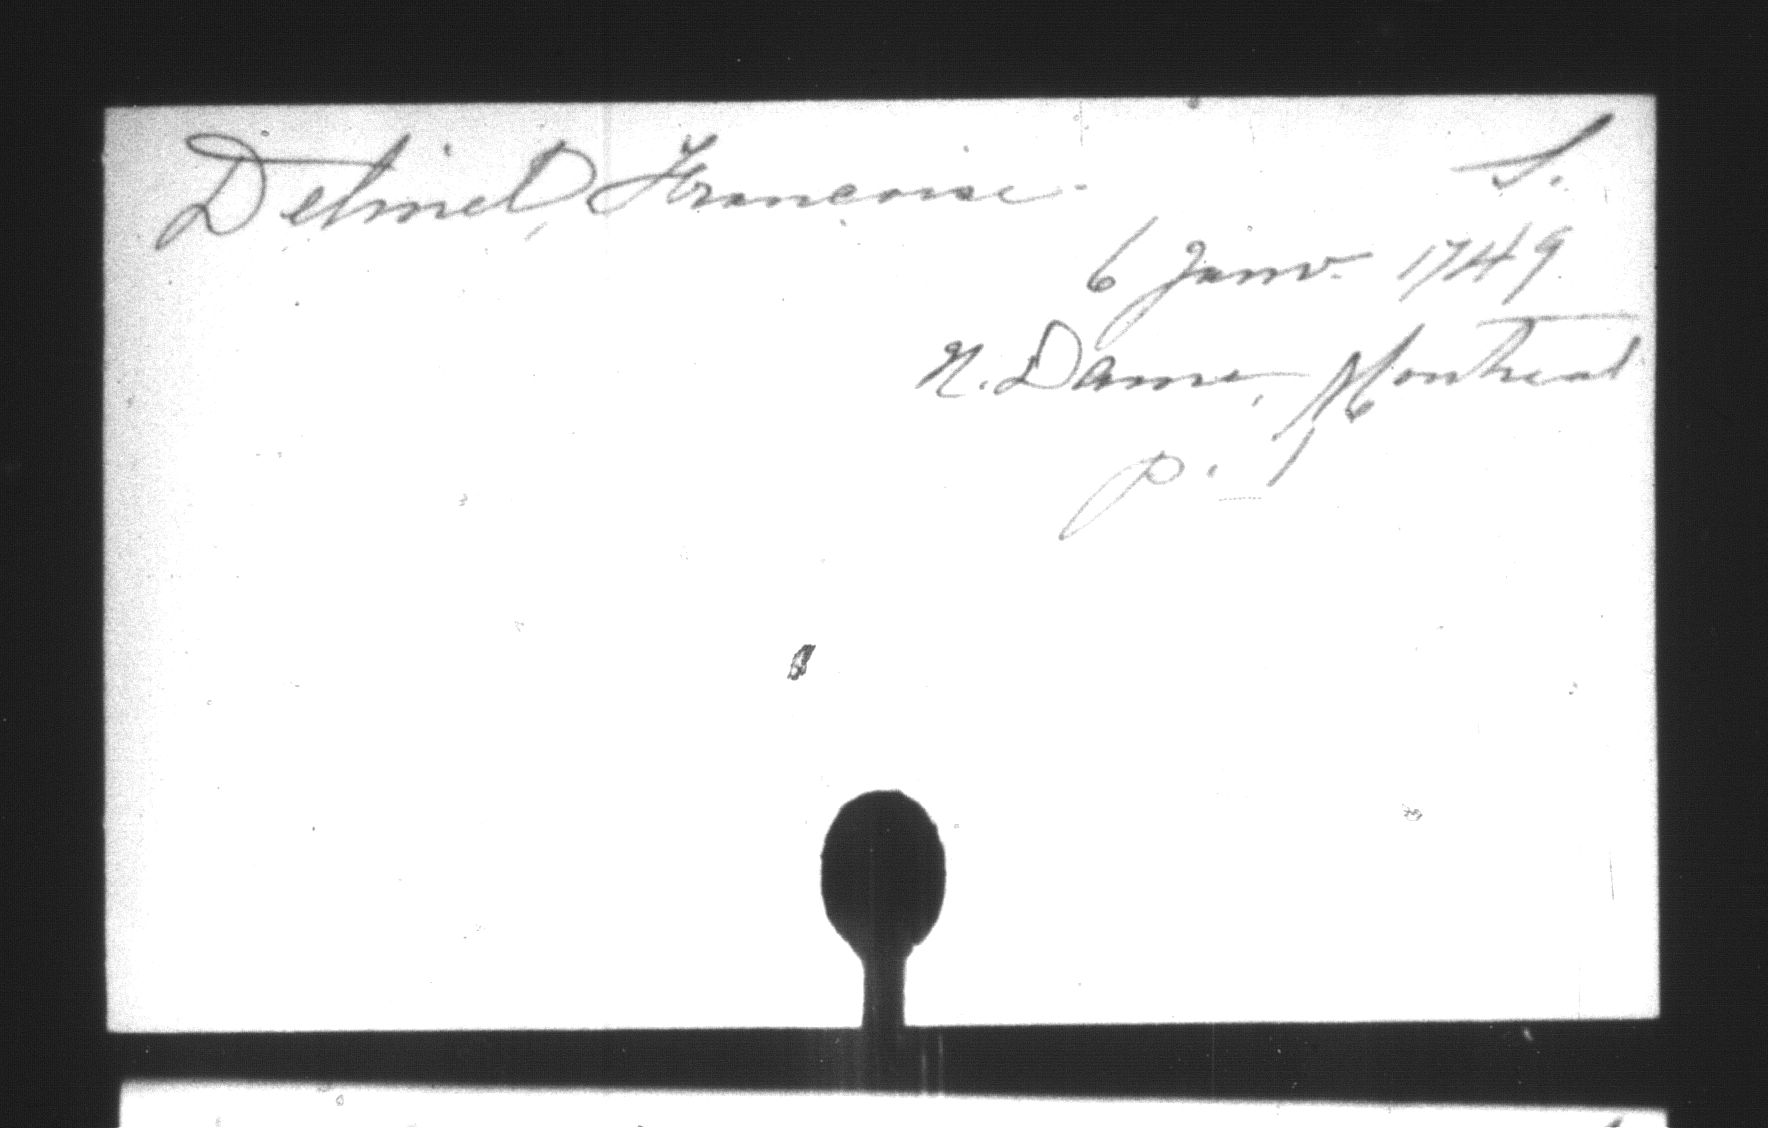 Deliniel, Francoise. S.
6 Janv. 1749
N. Dame, Montreal
p. 1